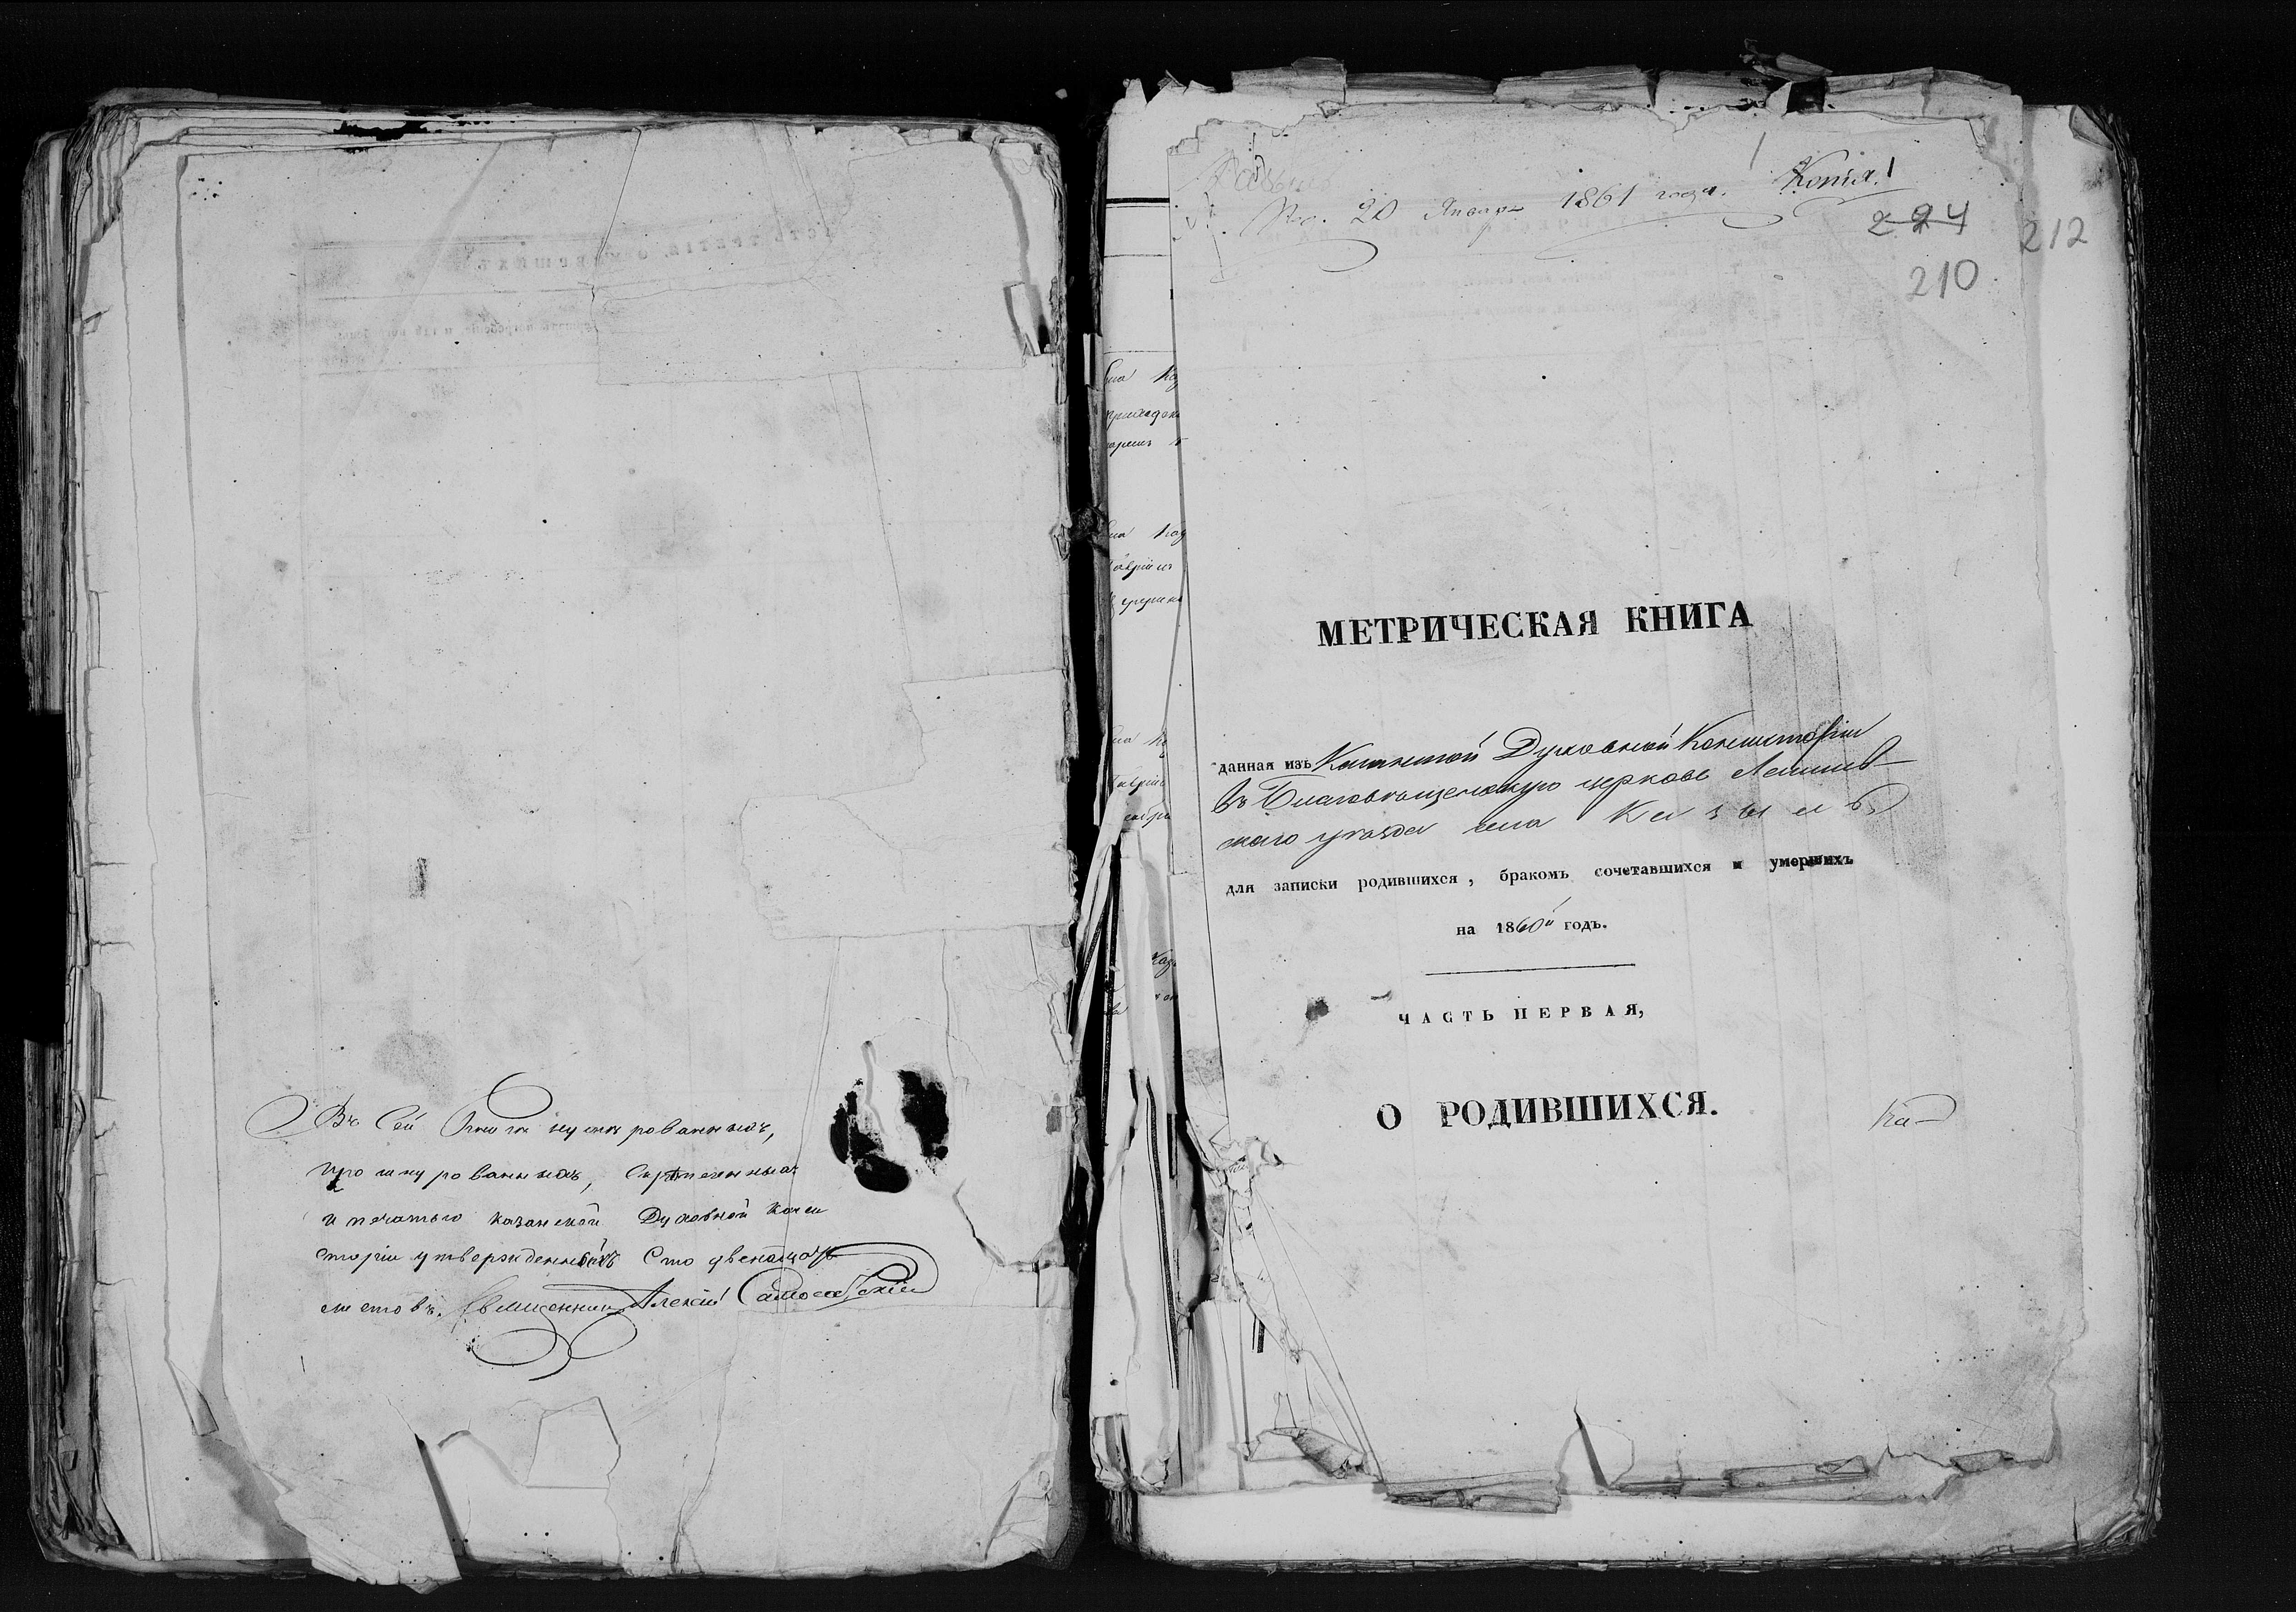 Въ Сей Книгѣ нумированныхъ,
прошнурованныхъ, скрѣпленныхъ
и печатью казанской Духовной Конси
сторіи утвержденныхъ Сто двенадцать
листовъ. Священникъ Алексій
Пол. 20 Января 1861 года. Копія.
224 212
210
МЕТРИЧЕСКАЯ КНИГА
данная изъ Казанской Духовной Консисторіи
въ Благовѣщенскую церковь Лаишев
скаго уѣзда села
для записки родившихся, бракомъ сочетавшихся и умершихъ
на 1860й годъ.
ЧАСТЬ ПЕРВАЯ,
О РОДИВШИХСЯ.
Ка